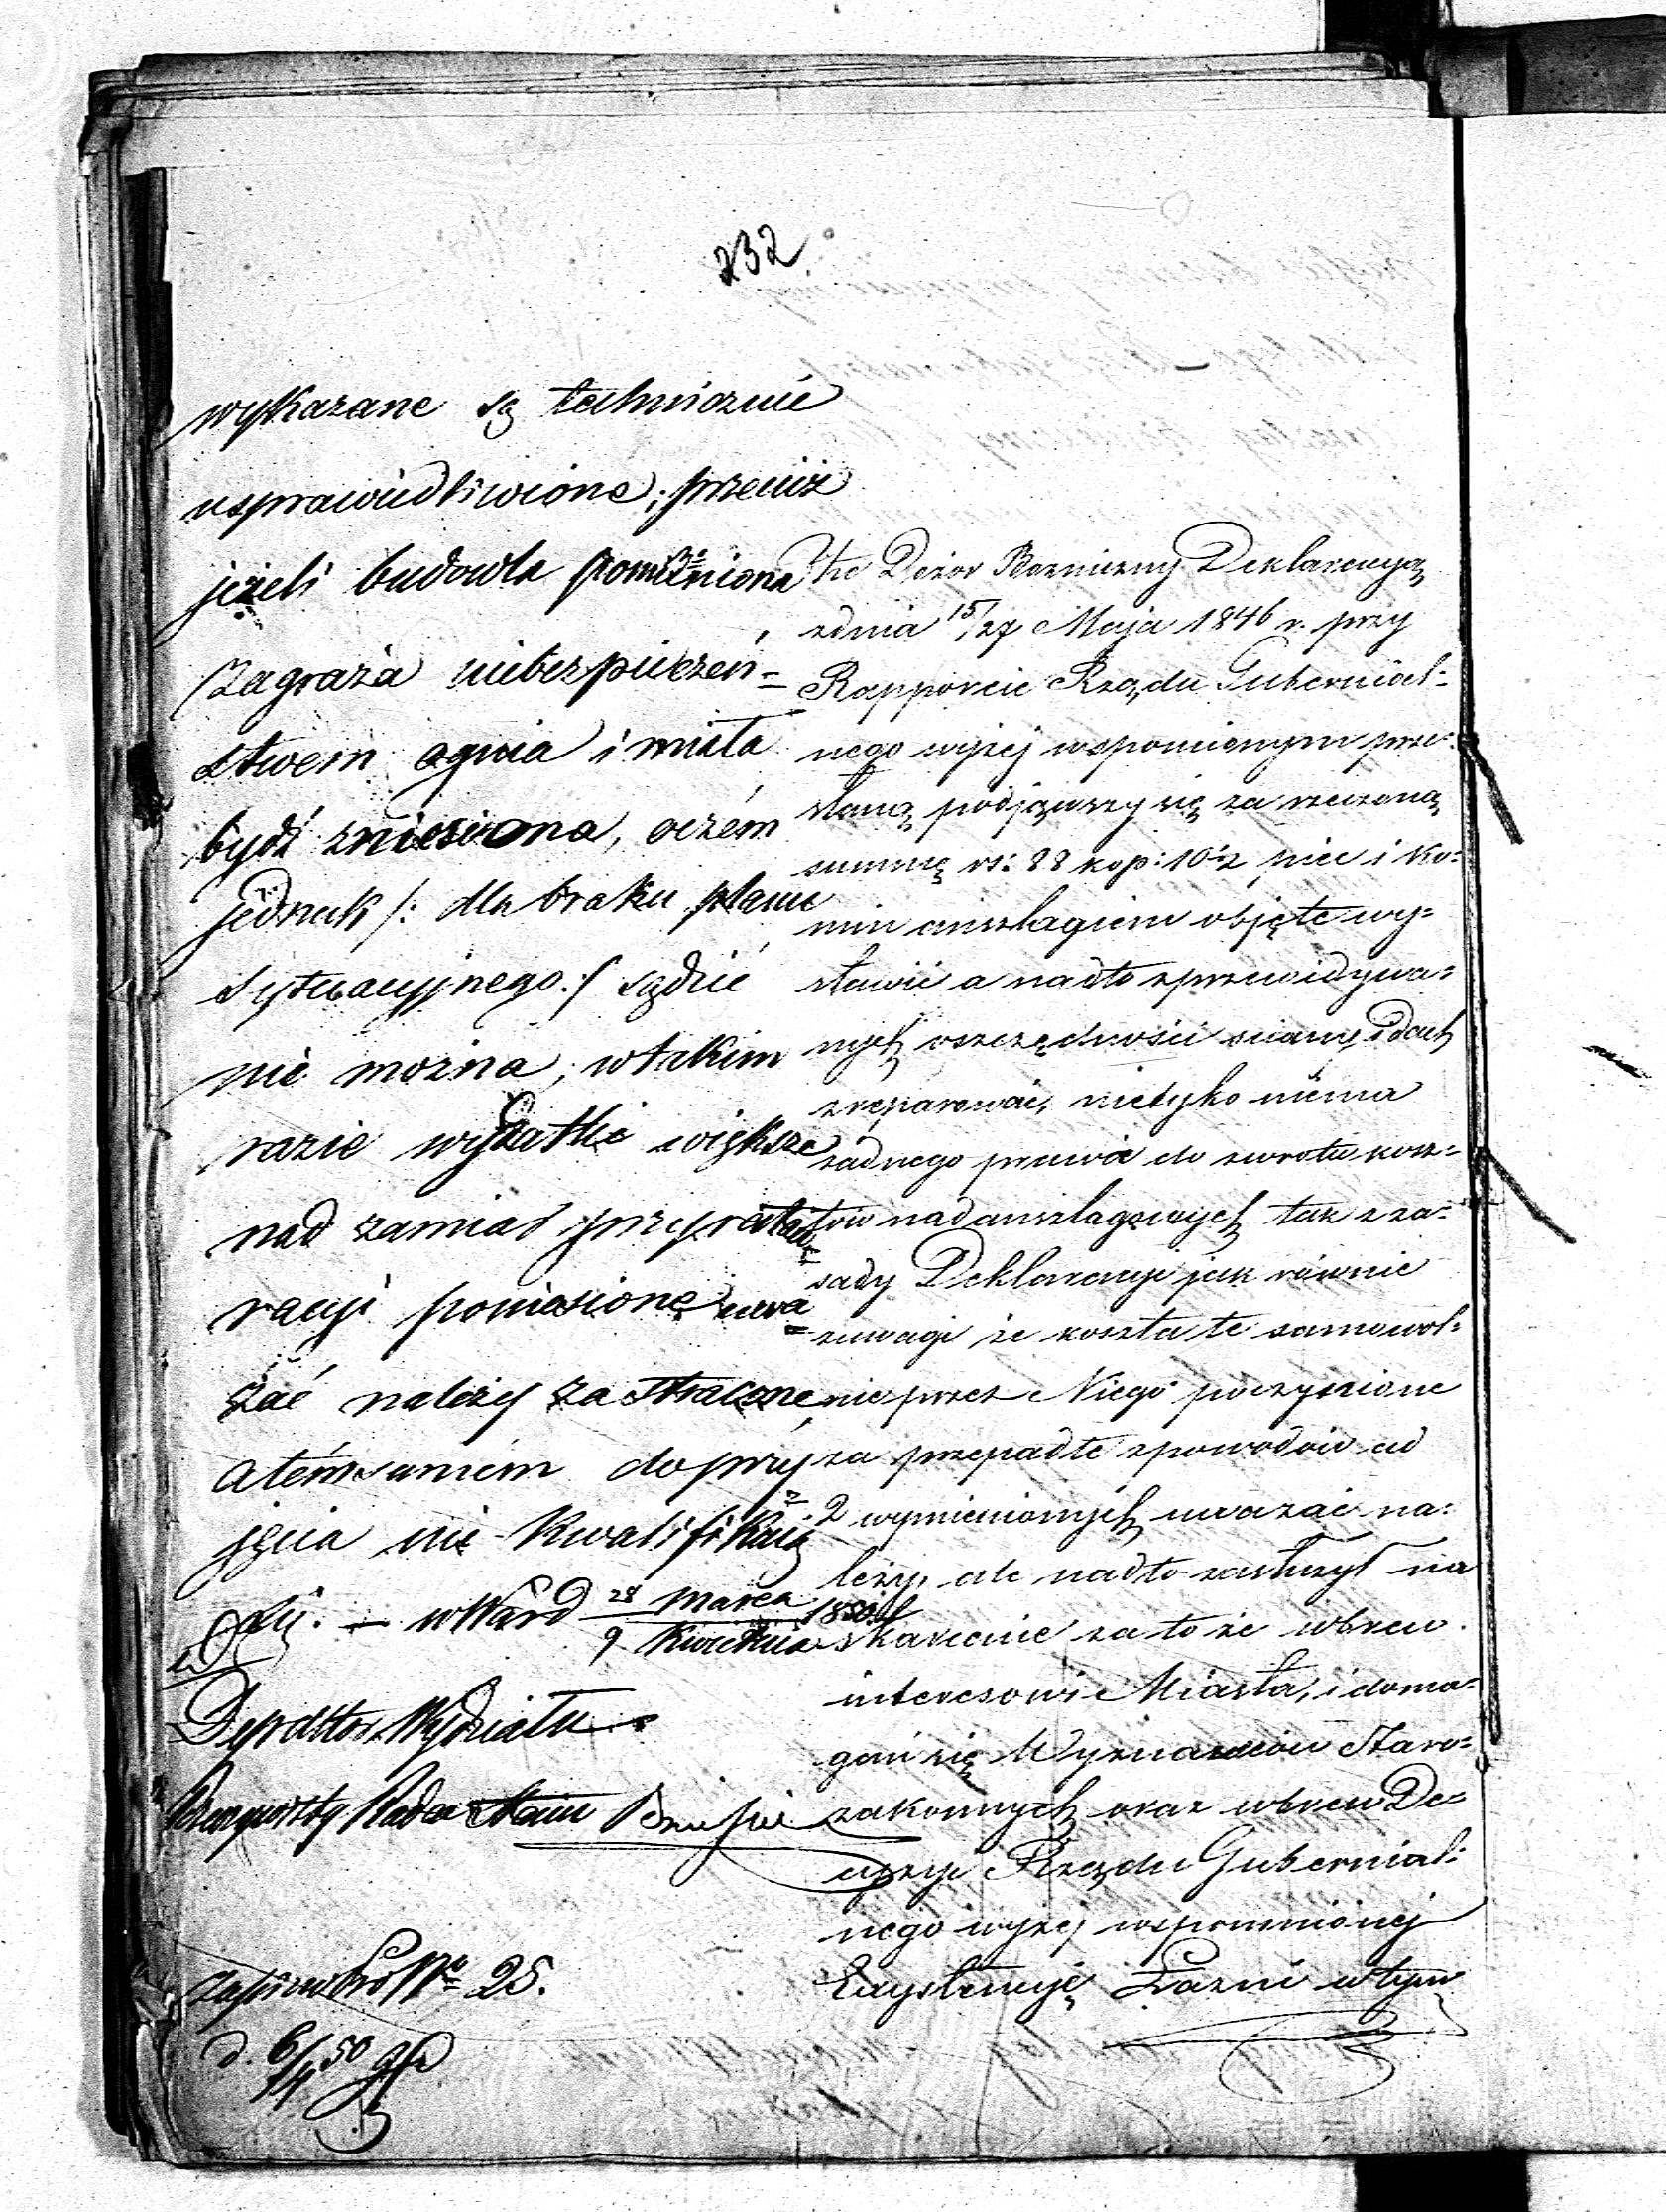 232
wykazane są technicznie
usprawiedliwione; przeciż
jeżeli budowla pomieniona
zagraża niebezpieczeń=
stwem ognia i miała
bydź zniesiona, oczém
jednak /: dla braku planu
sytuacyjnego :/ sądzić
nie można; wtakim
razie wydatki większe
nad zamiar przy repa
racyi poniesione uwa=
żać należy za stracone,
atémsamém do przy
jęcia nie kwalifikują
się. — wWard 28 Marca
9 Kwietnia 1850
Dyrektor Wydziału
Rzeczywisty Radca Stanu
zapis
No 25.
d. 6/4 50
że Dozor Bożniczny Deklaracyą
zdnia 15/27 Maja 1846 r. przy
Rapporcie Rządu Gubernial=
nego wyżej wspomionym prze=
słaną podjąwszy się za rzeczoną
summę rs: 88 kop: 10 1/2 piec i ko=
min anszlagiem objęte wy=
stawić a nadto zprzewidywa=
nych oszczędności scianę i dach
zreparować, nietylko niema
żadnego prawa do zwrotu kosz=
tów nadanszlagowych tak z za=
sady Deklaracyi jak równie
zuwagi że koszta te samowol=
nie przez Niego poczynione
za przepadłe zpowodów ad
2 wymienionych uważać na=
leży, ale nadto zasłużył na
skarcenie za to że wbrew
interesowi Miasta, i doma=
gań się Wyznawców Staro=
zakonnych oraz wbrew De=
cyzyi Rządu Gubernial=
nego wyżej wspomnionej
Egzystencyę Łazni wtym